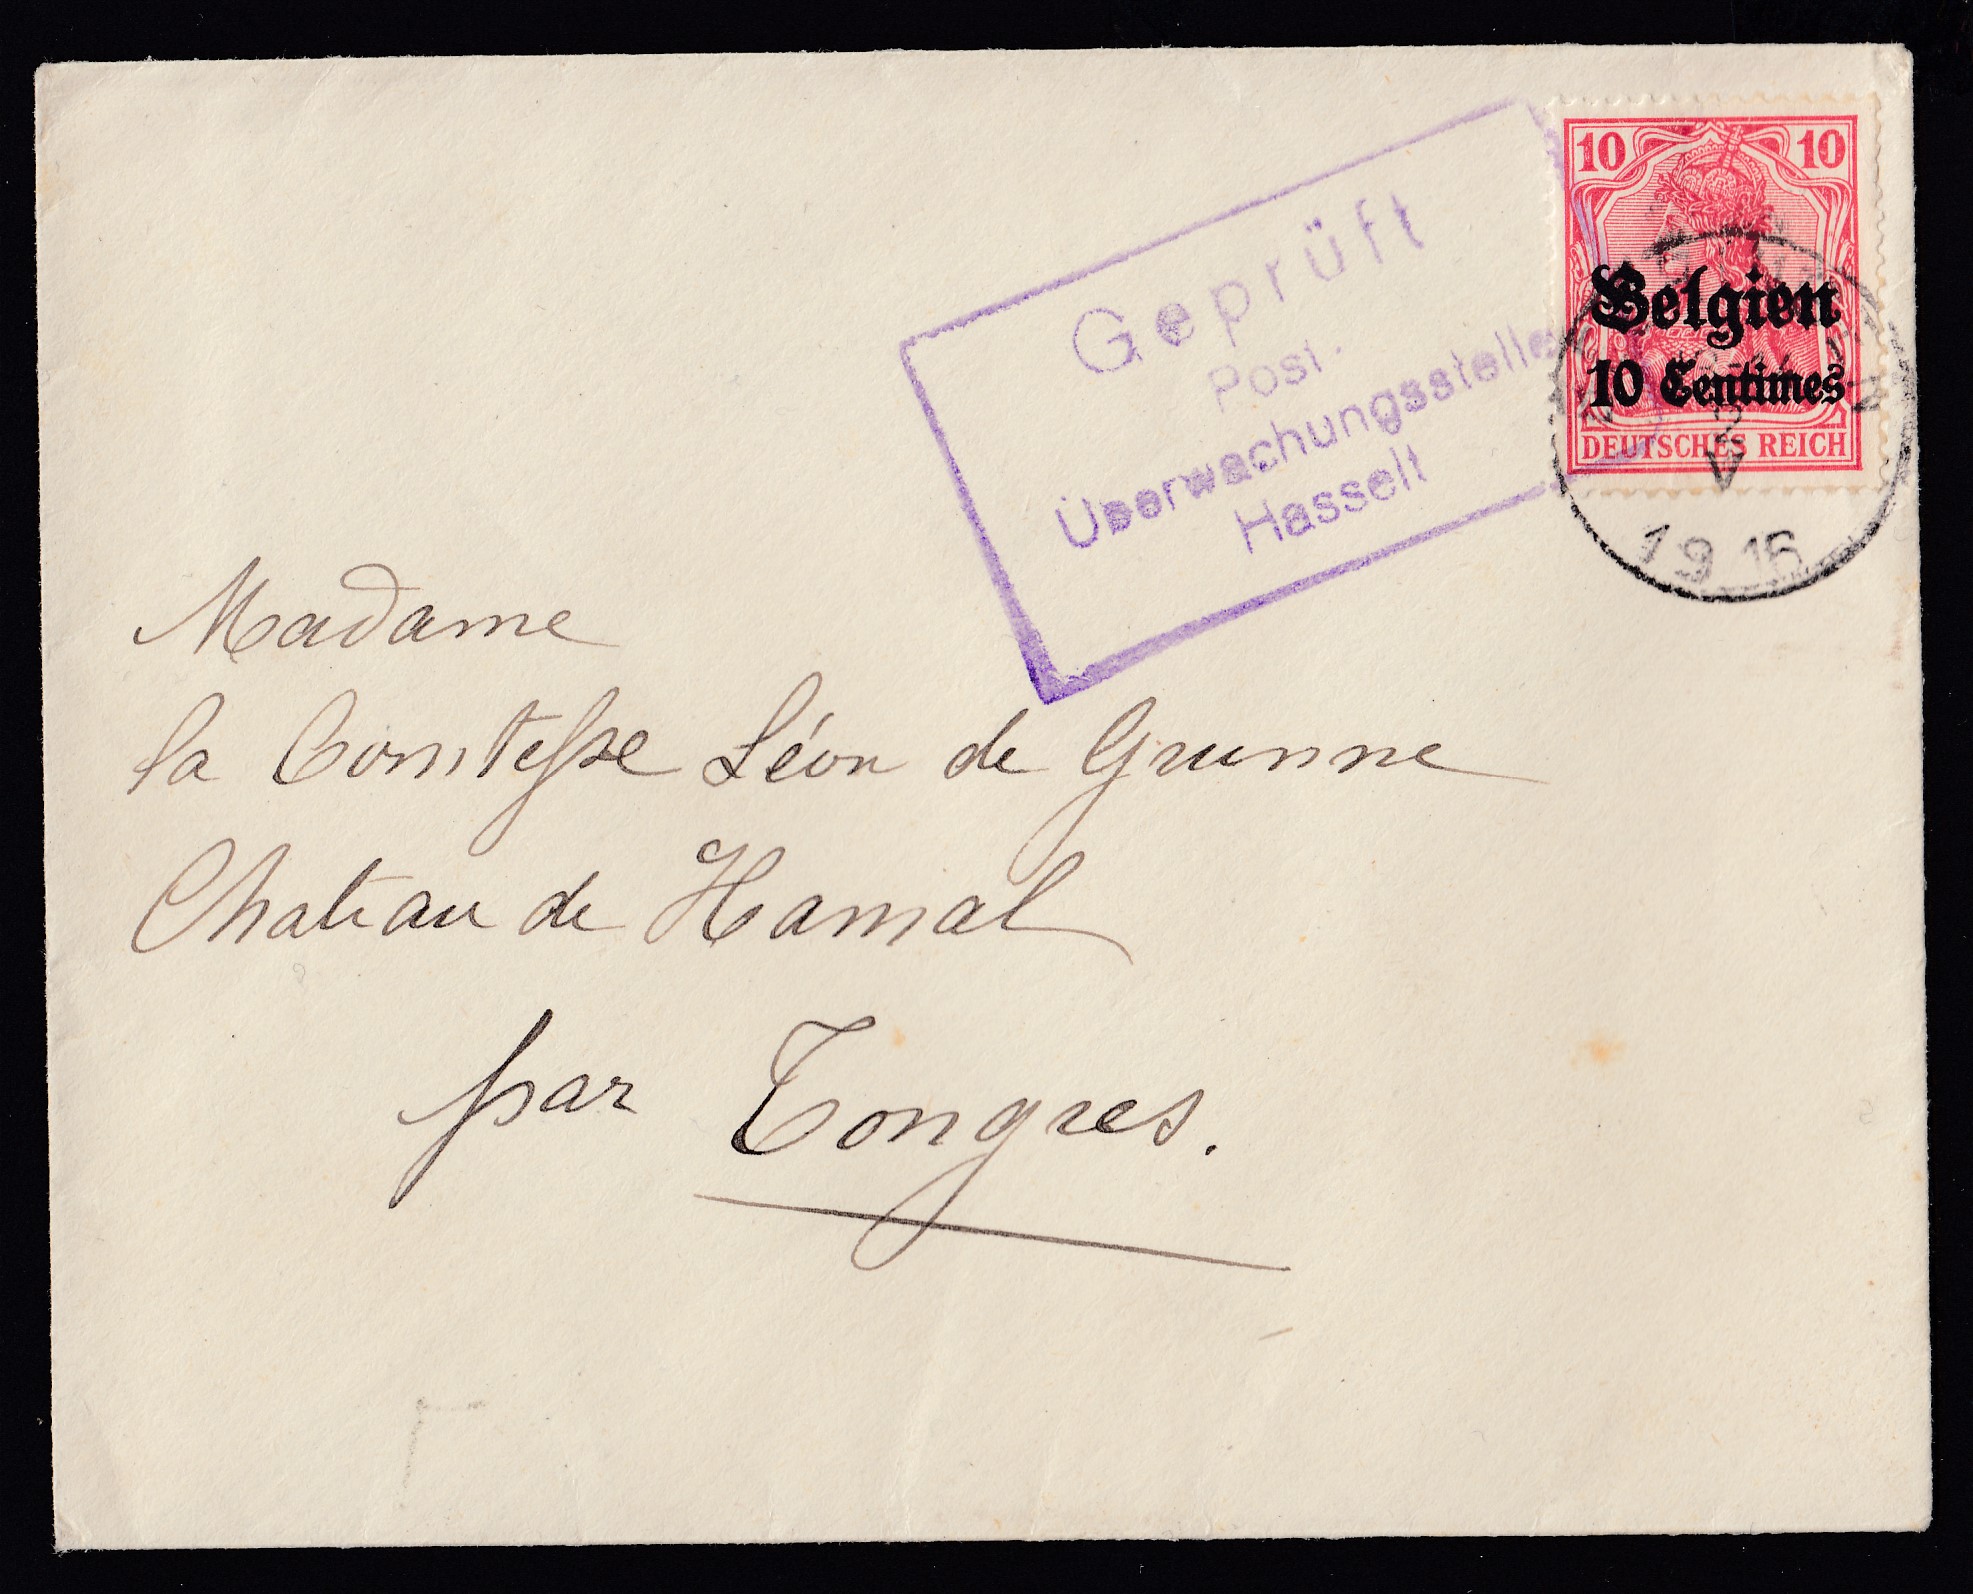 10 10
Belgien
10 Centimes
DEUTSCHES REICH
1916
Geprüft
Post-
Überwachungsstelle
Hasselt
Madame
la Comtesse Léon de Grunne
Chateau de Hamal
par Tongres.